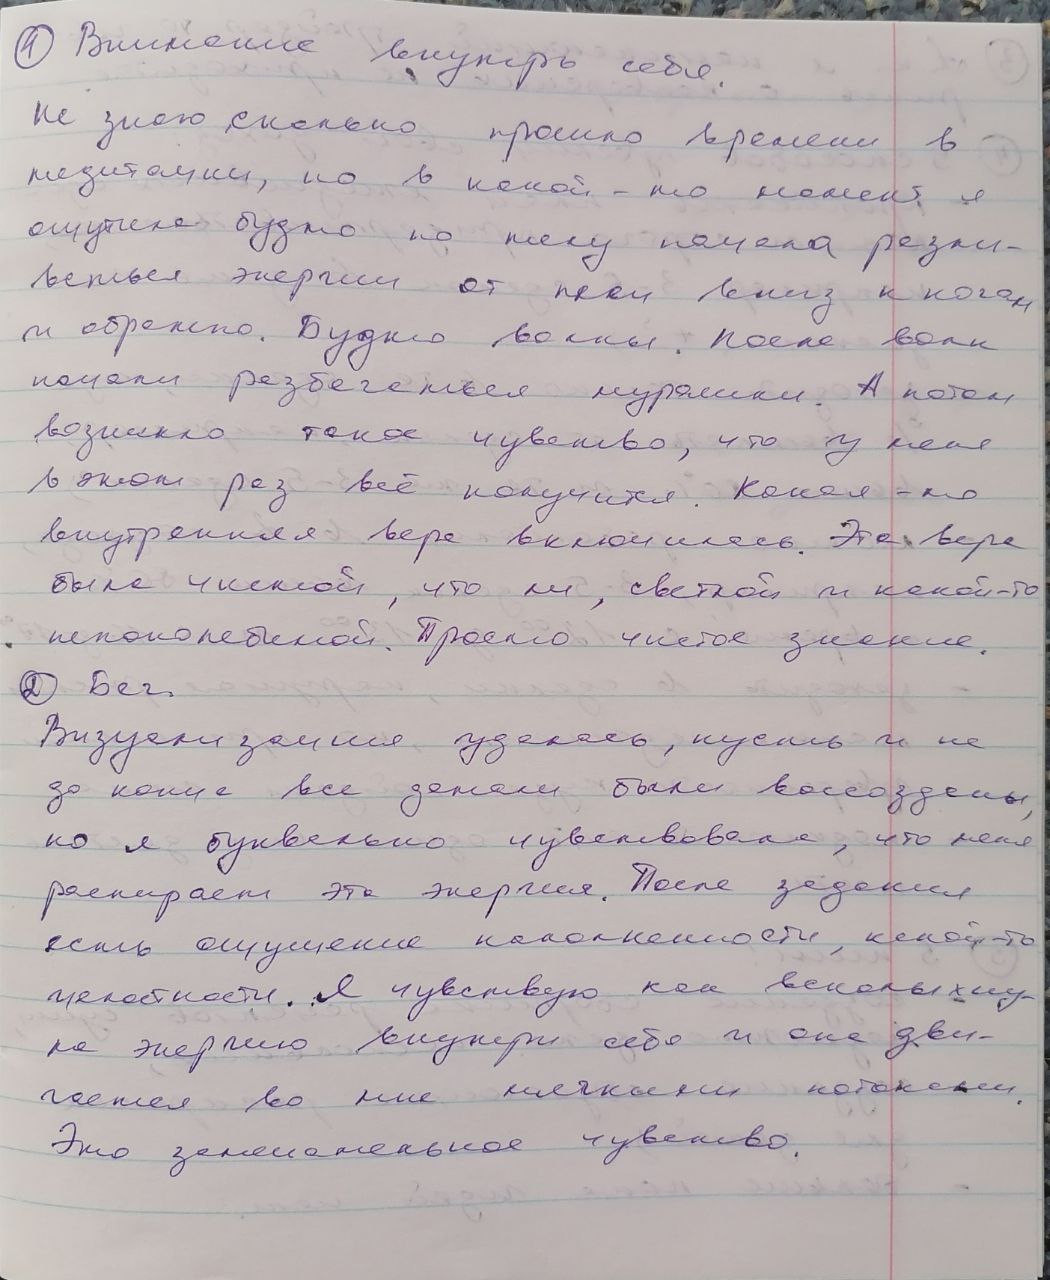 ① Внимание внутрь себя.
Не знаю, сколько прошло времени в
медитации, но в какой-то момент я
ощутила будто по телу начала разли-
ваться энергия от шеи вниз к ногам
и обратно. Будто волны. После волн
начали разбегаться мурашки. А потом
возникло такое чувство, что у меня
в этот раз всё получится. Какая-то
внутренняя вера включилась. Эта вера
была чистой, что ли, светлой и какой-то
непоколебимой. Просто чистое знание.
② Бег.
Визуализация удалась, пусть и не
до конца все детали были воссозданы,
но я буквально чувствовала, что меня
распирает эта энергия. После задания
есть ощущение наполненности, какой-то
целостности. Я чувствую как всколыхну-
ла энергию внутри себя и она дви-
гается во мне мягкими потоками.
Это замечательное чувство.